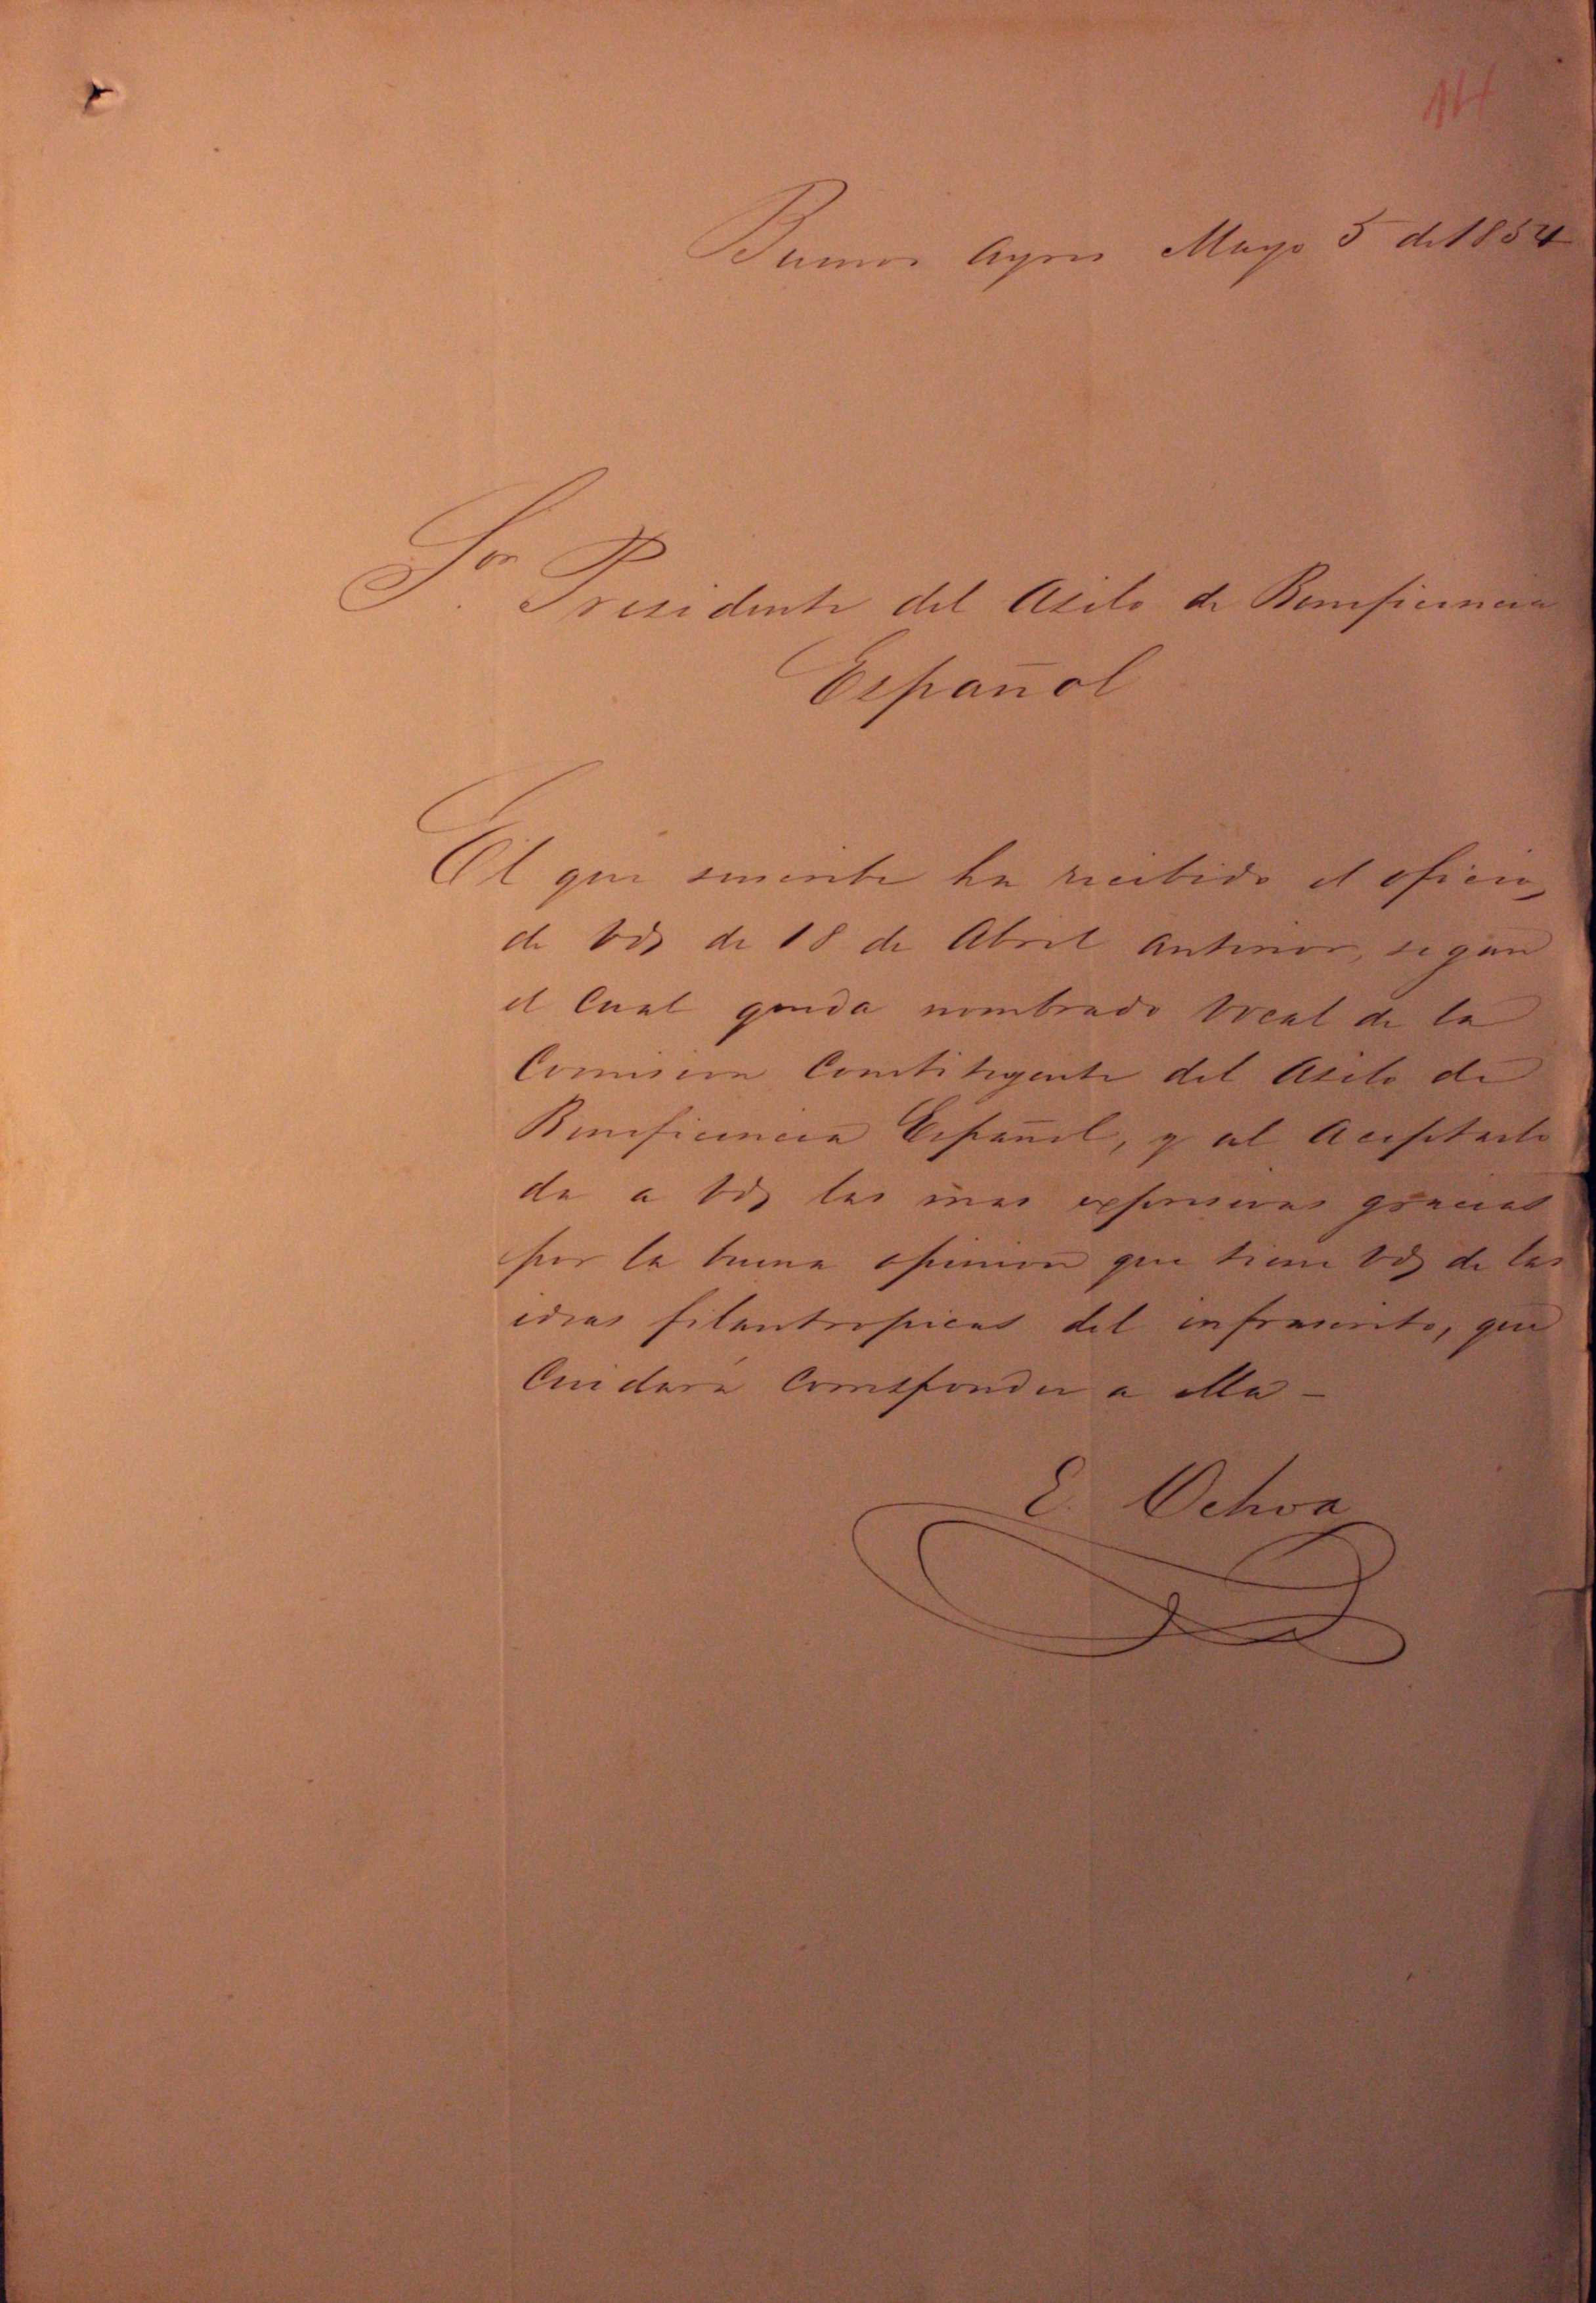 114
Buenos Ayres Mayo 5 de 1854
Sor Presidente del Asilo de Beneficencia
Español
El que suscribe ha recibido el oficio
de Vds de 18 de Abril anterior, segun
el Cual queda nombrado Vocal de la
Comision Constituyente del Asilo de
Beneficencia Español, y al Aceptarlo
da a Vds las mas expresivas gracias
por la buena opinion que tiene Vds de las
ideas filantropicas del infrascrito, que
Cuidará Corresponder a ella -
E. Ochoa